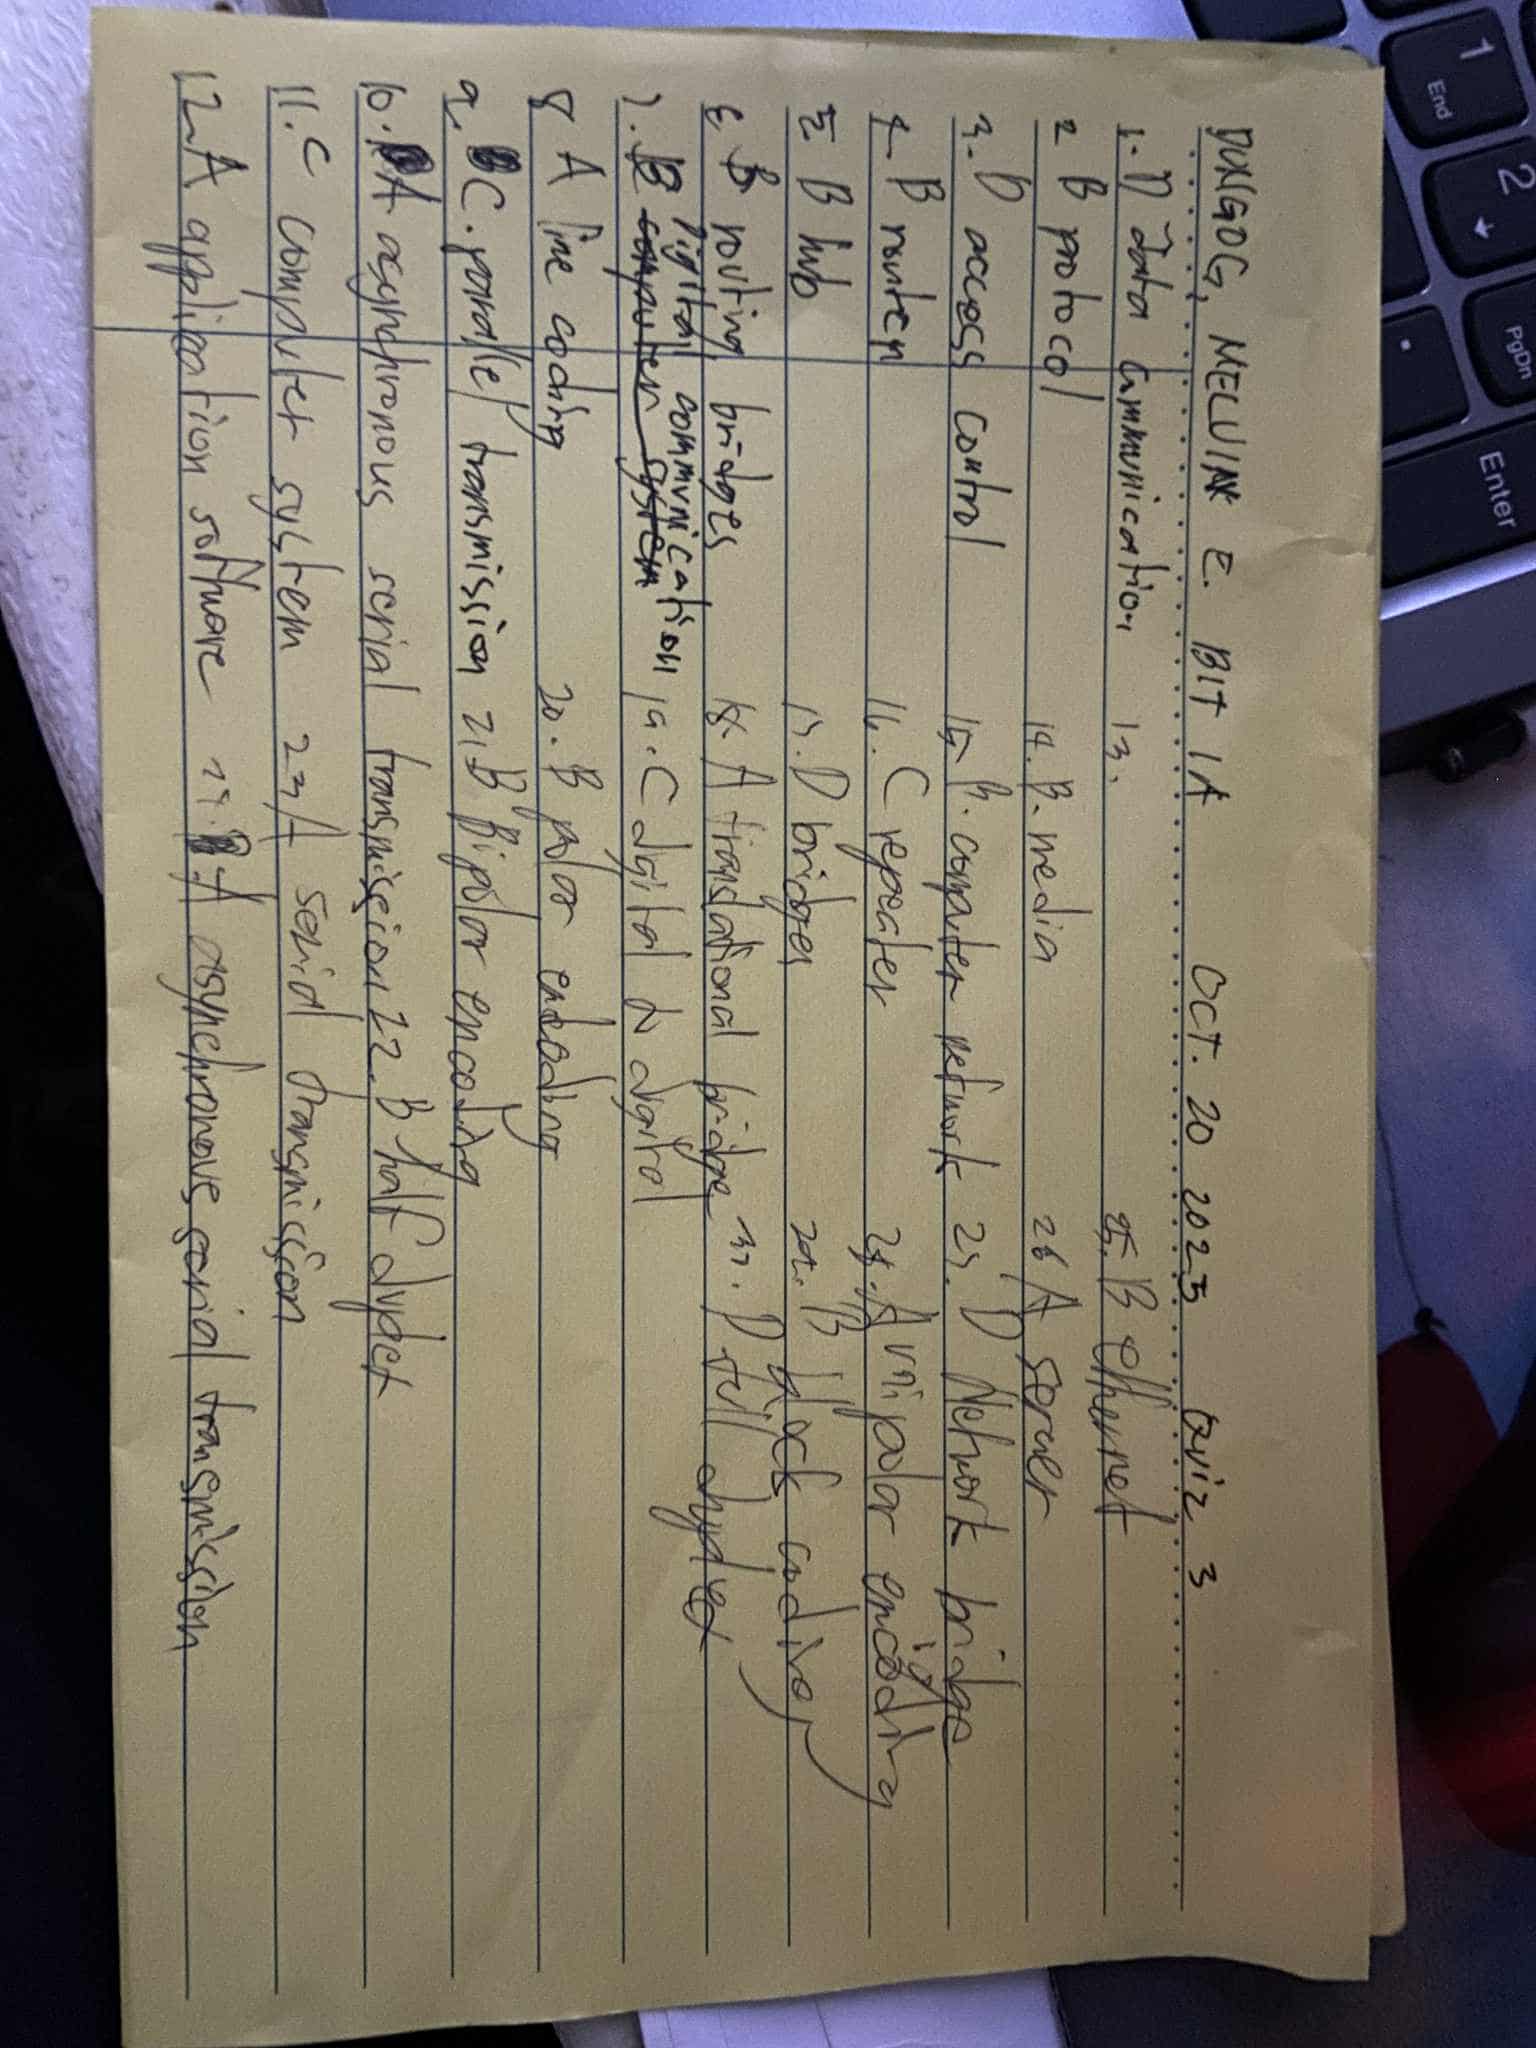 1
End
2
PgDn
Enter
.
DUNGOG, E. BIT 1A OCT. 20 2025 Quiz 3
1. D Data communication
2 B protocol
3. D access control
4 B router
5 B hub
6 B routing bridges
Digital communication
7. B computer system
8 A line coding
9 C. parallel transmission
10. A asynchronous serial transmission
11. C computer system
12 A application software
13.
14. B. media
15 B. computer network
16. C repeater
17. D bridges
18. A translational bridge
19. C digital to digital
20. B polar encoding
21 B Bipolar encoding
22. B half duplex
23 A serial transmission
24. A asynchronous serial transmission
25. B ethernet
26 A server
27. D Network bridge
28. A unipolar encoding
29. B block coding
30. D full duplex